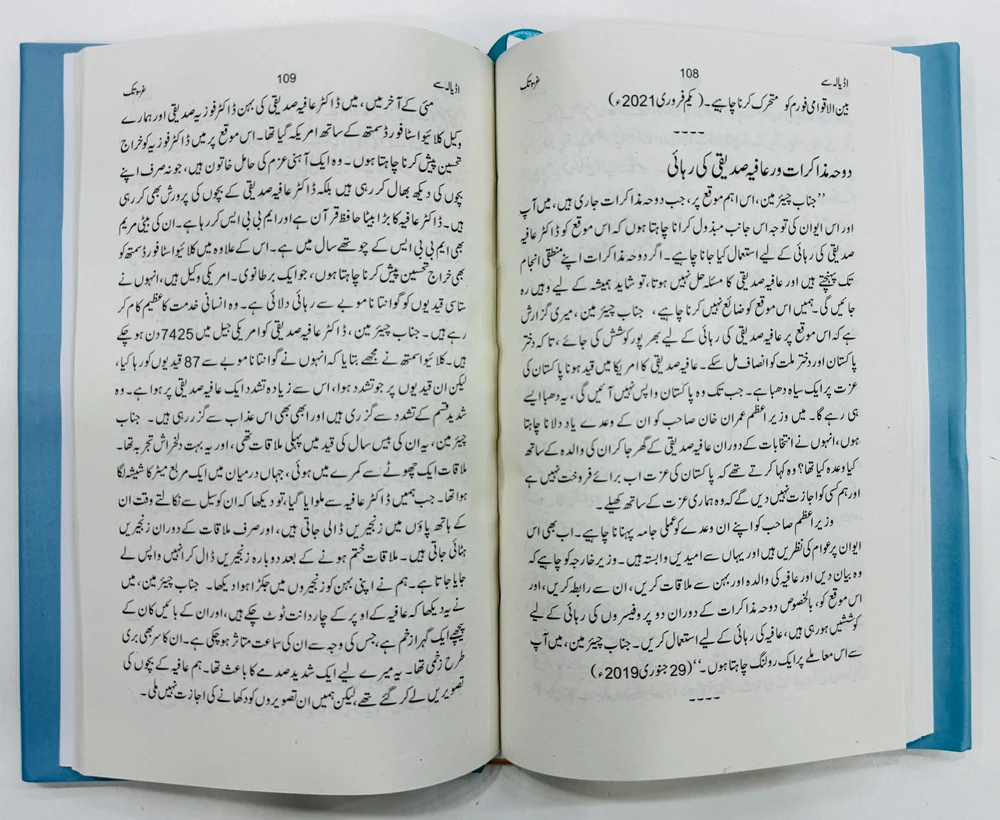 اڈیالہ سے 108 غزہ تک
بین الاقوامی فورم کو متحرک کرنا چاہیے۔ (یکم فروری 2021ء)
----
دوحہ مذاکرات ور عافیہ صدیقی کی رہائی
’’جناب چیئرمین، اس اہم موقع پر، جب دوحہ مذاکرات جاری ہیں، میں آپ
اور اس ایوان کی توجہ اس جانب مبذول کرانا چاہتا ہوں کہ اس موقع کو ڈاکٹر عافیہ
صدیقی کی رہائی کے لیے استعمال کیا جانا چاہیے۔ اگر دوحہ مذاکرات اپنے منطقی انجام
تک پہنچتے ہیں اور عافیہ صدیقی کا مسئلہ حل نہیں ہوتا، تو شاید ہمیشہ کے لیے وہیں رہ
جائیں گی۔ ہمیں اس موقع کو ضائع نہیں کرنا چاہیے، جناب چیئرمین، میری گزارش
ہے کہ اس موقع پر عافیہ صدیقی کی رہائی کے لیے بھرپور کوشش کی جائے، تاکہ دختر
پاکستان اور دختر ملت کو انصاف مل سکے۔ عافیہ صدیقی کا امریکا میں قید ہونا پاکستان کی
عزت پر ایک سیاہ دھبا ہے۔ جب تک وہ پاکستان واپس نہیں آئیں گی، یہ دھبا ایسے
ہی رہے گا۔ میں وزیراعظم عمران خان صاحب کو ان کے وعدے یاد دلانا چاہتا
ہوں، انہوں نے انتخابات کے دوران عافیہ صدیقی کے گھر جا کر ان کی والدہ کے ساتھ
کیا وعدہ کیا تھا؟ وہ کہا کرتے تھے کہ پاکستان کی عزت اب برائے فروخت نہیں ہے
اور ہم کسی کو اجازت نہیں دیں گے کہ وہ ہماری عزت کے ساتھ کھیلے۔
وزیراعظم صاحب کو اپنے ان وعدے کو عملی جامہ پہنانا چاہیے۔ اب بھی اس
ایوان پر عوام کی نظریں ہیں اور یہاں سے امیدیں وابستہ ہیں۔ وزیر خارجہ کو چاہیے کہ
وہ بیان دیں اور عافیہ کی والدہ اور بہن سے ملاقات کریں، ان سے رابطہ کریں، اور
اس موقع کو، بالخصوص دوحہ مذاکرات کے دوران دو پروفیسروں کی رہائی کے لیے
کوششیں ہو رہی ہیں، عافیہ کی رہائی کے لیے استعمال کریں۔ جناب چیئرمین، میں آپ
سے اس معاملے پر ایک رولنگ چاہتا ہوں۔‘‘ (29 جنوری 2019ء)
----
اڈیالہ سے 109 غزہ تک
مئی کے آخر میں، میں ڈاکٹر عافیہ صدیقی کی بہن ڈاکٹر فوزیہ صدیقی اور ہمارے
وکیل کلائیو اسٹافورڈ سمتھ کے ساتھ امریکہ گیا تھا۔ اس موقع پر میں ڈاکٹر فوزیہ کو خراج
تحسین پیش کرنا چاہتا ہوں۔ وہ ایک آہنی عزم کی حامل خاتون ہیں، جو نہ صرف اپنے
بچوں کی دیکھ بھال کر رہی ہیں بلکہ ڈاکٹر عافیہ صدیقی کے بچوں کی پرورش بھی کر رہی
ہیں۔ ڈاکٹر عافیہ کا بڑا بیٹا حافظ قرآن ہے اور ایم بی بی ایس کر رہا ہے۔ ان کی بیٹی مریم
بھی ایم بی بی ایس کے چوتھے سال میں ہے۔ اس کے علاوہ میں کلائیو اسٹافورڈ سمتھ کو
بھی خراج تحسین پیش کرنا چاہتا ہوں، جو ایک برطانوی۔ امریکی وکیل ہیں، انہوں نے
سیاسی قیدیوں کو گوانتاناموبے سے رہائی دلائی ہے۔ وہ انسانی خدمت کا عظیم کام کر
رہے ہیں۔ جناب چیئرمین، ڈاکٹر عافیہ صدیقی کو امریکی جیل میں 7425 دن ہو چکے
ہیں۔ کلائیو اسمتھ نے مجھے بتایا کہ انہوں نے گوانتاناموبے سے 87 قیدیوں کو رہا کیا،
لیکن ان قیدیوں پر جو تشدد ہوا، اس سے زیادہ تشدد ایک عافیہ صدیقی پر ہوا ہے۔ وہ
شدید قسم کے تشدد سے گزری ہیں اور ابھی بھی اس عذاب سے گزر رہی ہیں۔ جناب
چیئرمین، یہ ان کی بیس سال کی قید میں پہلی ملاقات تھی، اور یہ بہت دلخراش تجربہ تھا۔
ملاقات ایک چھوٹے سے کمرے میں ہوئی، جہاں درمیان میں ایک مربع میٹر کا شیشہ لگا
ہوا تھا۔ جب ہمیں ڈاکٹر عافیہ سے ملوایا گیا، تو دیکھا کہ ان کو سیل سے نکالتے وقت ان
کے ہاتھ پاؤں میں زنجیریں ڈالی جاتی ہیں، اور صرف ملاقات کے دوران زنجیریں
ہٹائی جاتی ہیں۔ ملاقات ختم ہونے کے بعد دوبارہ زنجیریں ڈال کر انہیں واپس لے
جایا جاتا ہے۔ ہم نے اپنی بہن کو زنجیروں میں جکڑا ہوا دیکھا۔ جناب چیئرمین، میں
نے یہ دیکھا کہ عافیہ کے اوپر کے چار دانت ٹوٹ چکے ہیں، اور ان کے بائیں کان کے
پیچھے ایک گہرا زخم ہے، جس کی وجہ سے ان کی سماعت متاثر ہو چکی ہے۔ ان کا سر بھی بری
طرح زخمی تھا۔ یہ میرے لیے ایک شدید صدمے کا باعث تھا۔ ہم عافیہ کے بچوں کی
تصویریں لے کر گئے تھے، لیکن ہمیں ان تصویروں کو دکھانے کی اجازت نہیں ملی۔